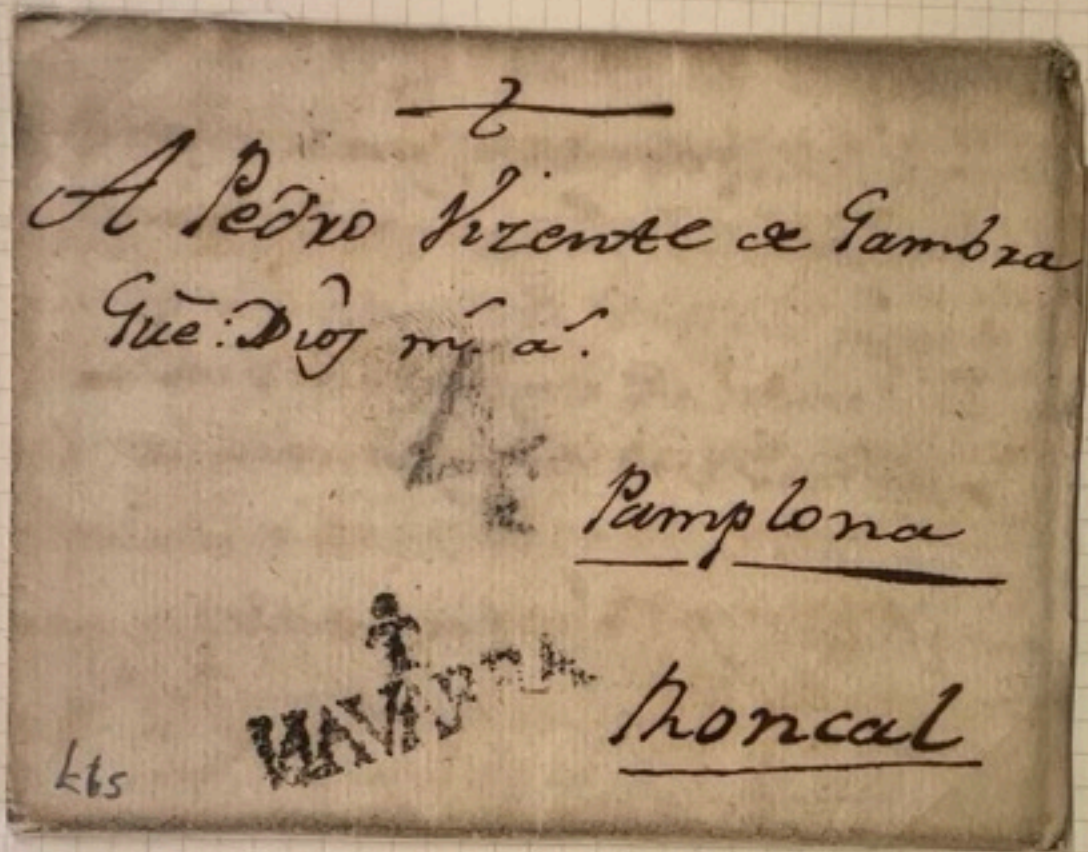 A Pedro Vizente de Gambra
Gūe: Dios m.ˢ a.ˢ
4
Pamplona
NAVARRA
Roncal